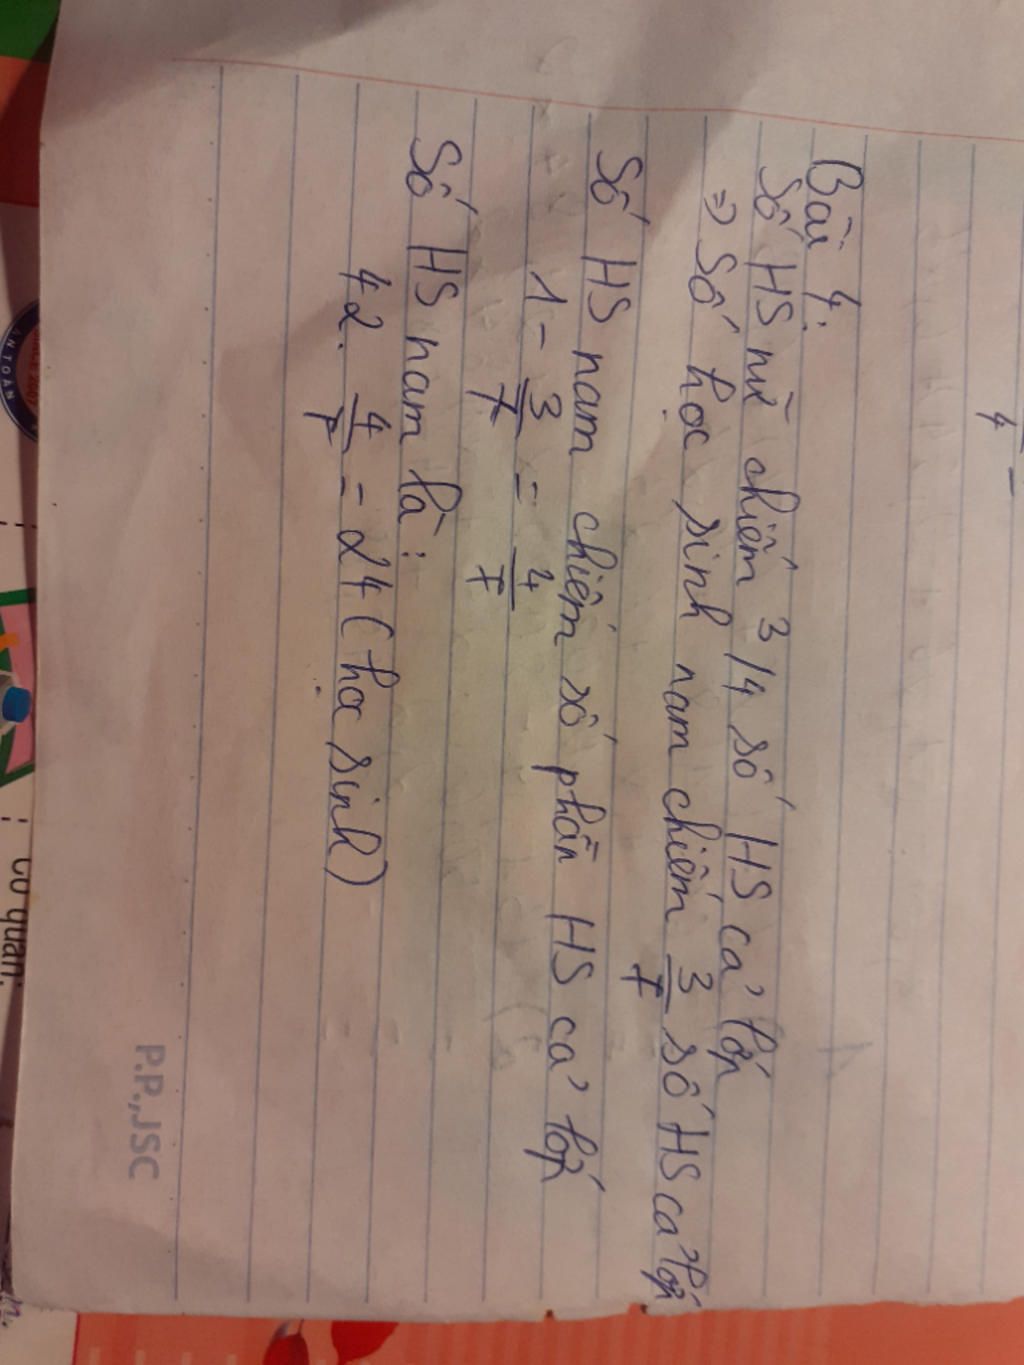 Bài 4:
Số HS nữ chiếm 3/4 số HS cả lớp
⇒ Số học sinh nam chiếm 3/7 số HS cả lớp
Số HS nam chiếm số phần HS cả lớp
1 - 3/7 = 4/7
Số HS nam là:
42. 4/7 = 24 (hoc sinh)
4
P.P.,JSC
cơ quan:
AN TOÀN